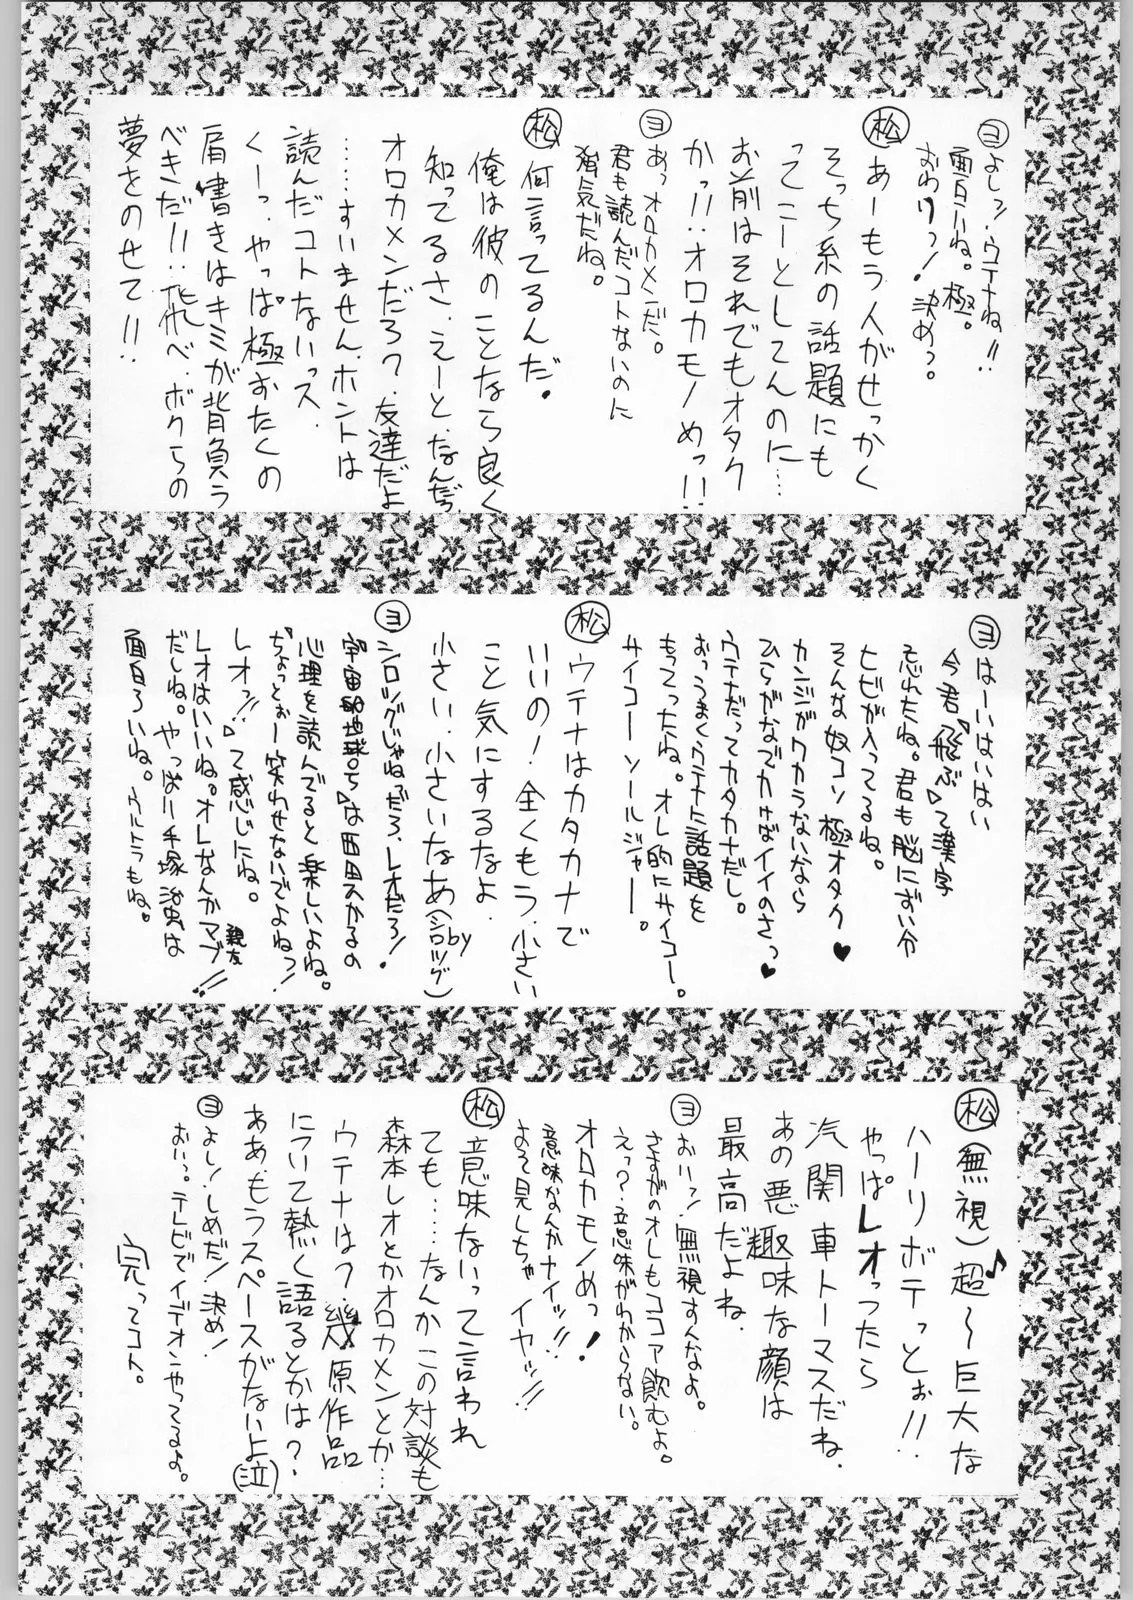 ヨ よしッ!ウテナね!!
面白いね。極。
おわりっ!決めっ。
松 あーもう人がせっかく
そっち系の話題にも
ってこーとしてんのに……
お前はそれでもオタク
かっ!!オロカモノめっ!!
ヨ あっオロカメンだ。
君も読んだコトないのに
強気だね。
松 何言ってるんだ。
俺は彼のことなら良く
知ってるさ、えーと、なんだっ
オロカメンだろ?友達だよ
……すいません、ホントは
読んだコトないっス
くーっ、やっぱ極おたくの
肩書きはキミが背負う
べきだ!!飛べ、ボクらの
夢をのせて!!
ヨ はーいはいはい
今君『飛ぶ』って漢字
忘れたね。君も脳にずい分
ヒビが入ってるね。
そんな奴コソ極オタク♥
カンジがワカらないなら
ひらがなでカけばイイのさっ♥
ウテナだってカタカナだし。
おっうまくウテナに話題を
もってったね。オレ的にサイコー。
サイコーソールジャー。
松 ウテナはカタカナで
いいの!全くもう、小さい
こと気にするなよ
小さい、小さいなあ(byシロッグ)
ヨ シロッグじゃねぇだろ、レオだろ!
宇宙船地球号は西田スかるの
心理を読んでると楽しいよね。
『ちょっとぉー笑わせないでよねっ!
レオッ!!』って感じにね。
レオはいいね。オレなんかマブ親友!!
だしね。やっぱ手塚治虫は
面白ろいね。ウルトラもね。
松 (無視)超〜巨大な♪
ハーリボテっとぉ!!
やっぱレオっつたら
汽関車トーマスだね、
あの悪趣味な顔は
最高だよね、
ヨ おいッ!無視すんなよ。
さすがのオレもココア飲むよ。
えっ?意味がわからない。
オロカモノめっ!
意味なんかナイッ!!
よって見しちゃイヤッ!!
松 意味ないって言われ
ても……なんかこの対談も
森本レオとかオロカメンとか…
ウテナは?幾原作品
について熱く語るとかは?
ああもうスペースがないよ(泣)
ヨ よし!しめだ!決め!
おいっ。テレビでイデオンやってるよ。
完ってコト。